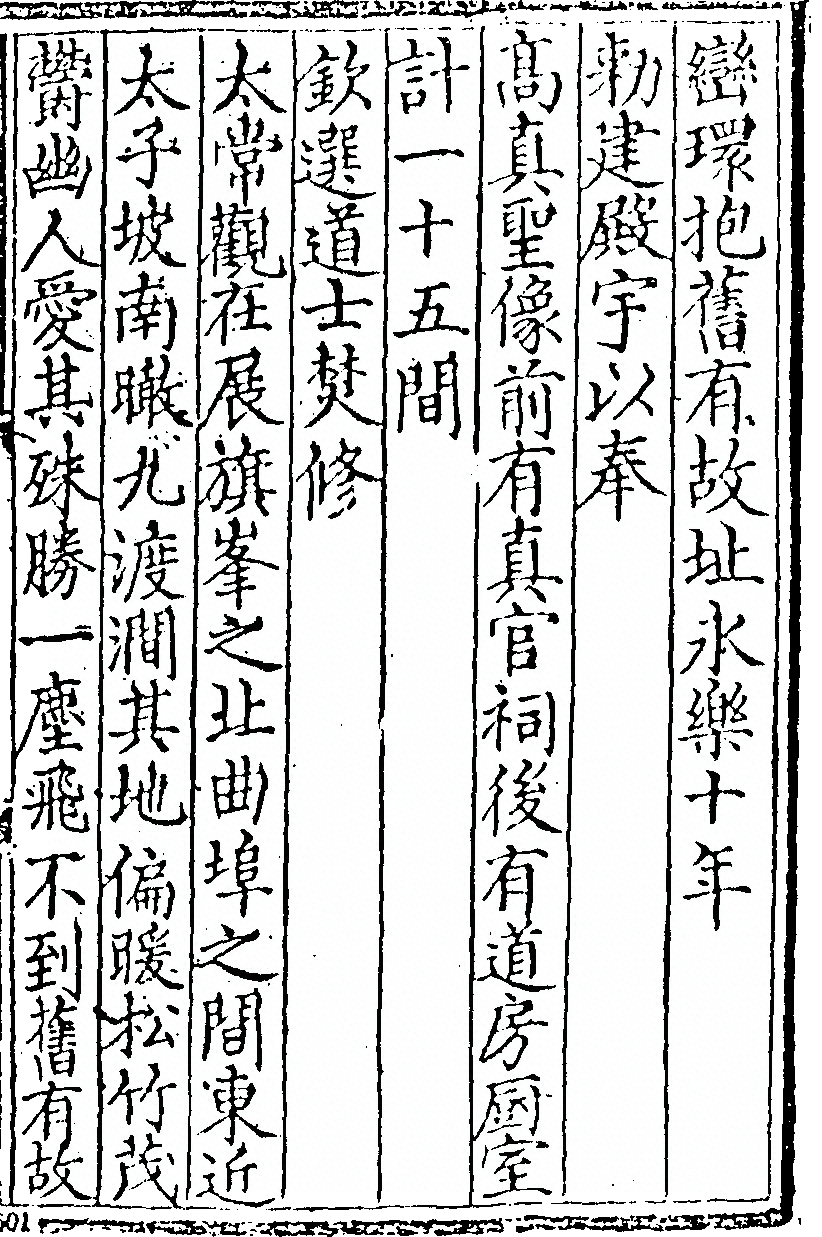 巒環抱舊有故址永樂十年
勑建殿宇以奉
髙真聖像前有真官祠後有道房厨室
計一十五間
欽選道士焚修
太常觀在展旗峯之北曲埠之間東近
太子坡南瞰九渡澗其地偏暖松竹茂
欝幽人愛其殊勝一塵飛不到舊有故
601